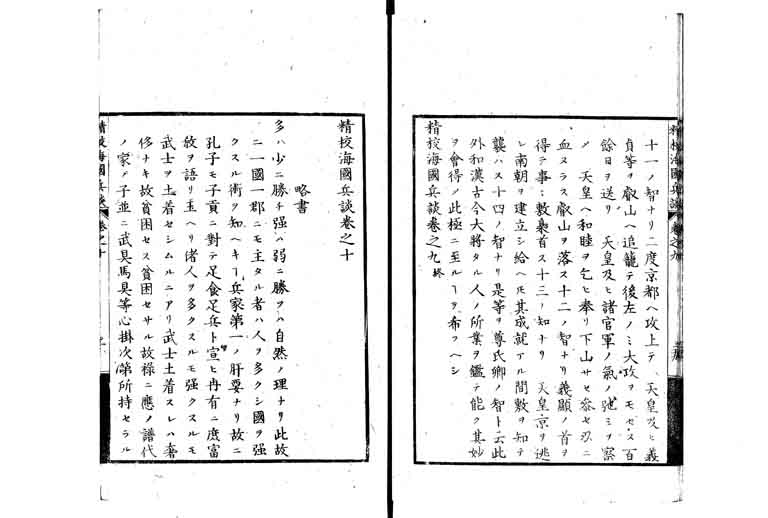 十一ノ智ナリ二度京都ヘ攻上テ 天皇及ヒ義
貞等ヲ叡山ヘ追籠テ後左ノミ大攻ヲモセス百
餘日ヲ送リ 天皇及ヒ諸官軍ノ氣ノ弛ミヲ察
メ 天皇ヘ和睦ヲ乞ヒ奉リ下山サセ参セ忍ニ
血ヌラス叡山ヲ落ス十二ノ智ナリ義顯ノ首ヲ
得テ事ニ敷梟首ス十三ノ知ナリ 天皇京ヲ逃
レ南朝ヲ建立シ給ヘ圧其成就アル間敷ヲ知テ
襲ハス十四ノ智ナリ是等ヲ尊氏卿ノ智ト云此
外和漢古今大將タル人ノ所業ヲ鑑テ能ク其妙
ヲ會得ノ此極ニ至ルヿヲ希フヘシ
精挍海國兵談卷之九終
精挍海國兵談 卷之九
精挍海國兵談卷之十
略書
多ハ少ニ勝チ强ハ弱ニ勝ヲハ自然ノ理ナリ此故
ニ一國一郡ニモ主タル者ハ人ヲ多クシ國ヲ强
クスル術ヲ知ヘキヿ兵家第一ノ肝要ナリ故ニ
孔子モ子貢ニ對テ足食足兵ト宣ヒ冉有ニ庶富
敎ヲ語リ玉ヘリ偖人ヲ多クスルモ强クスルモ
武士ヲ土着セシムルニアリ武士土着スレハ奢
侈ナキ故貧困セス貧困セサル故禄ニ應ノ譜代
ノ家ノ子並ニ武具馬具等心掛次第所持セラル
精挍海國兵談 卷之十